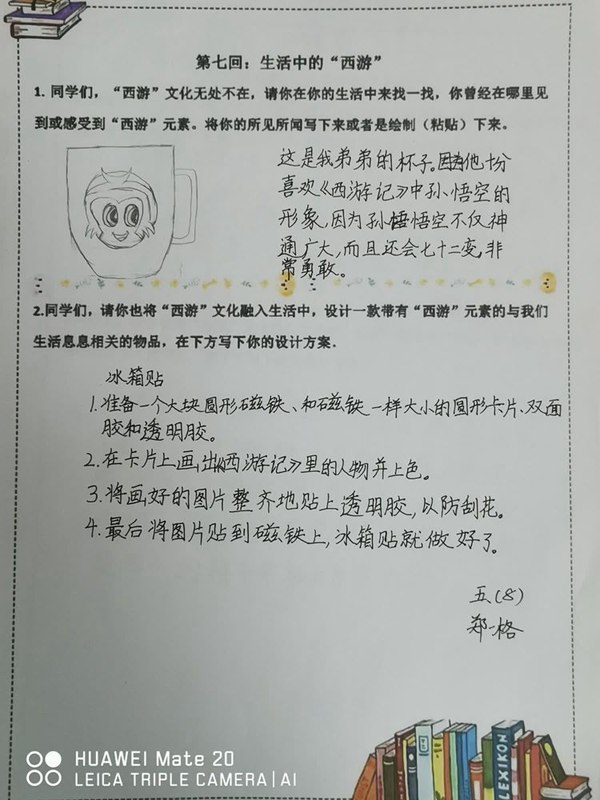 第七回：生活中的“西游”
1. 同学们，“西游”文化无处不在，请你在你的生活中来找一找，你曾经在哪里见
到或感受到“西游”元素。将你的所见所闻写下来或者是绘制（粘贴）下来。
这是我弟弟的杯子。因为他十分
喜欢《西游记》中孙悟空的
形象，因为孙悟空不仅神
通广大，而且还会七十二变，非
常勇敢。
2.同学们，请你也将“西游”文化融入生活中，设计一款带有“西游”元素的与我们
生活息息相关的物品，在下方写下你的设计方案.
冰箱贴
1.准备一个大块圆形磁铁、和磁铁一样大小的圆形卡片、双面
胶和透明胶。
2.在卡片上画出《西游记》里的人物并上色。
3.将画好的图片整齐地贴上透明胶，以防刮花。
4.最后将图片贴到磁铁上，冰箱贴就做好了。
五(8)
郑一格
LEXIKON
HUAWEI Mate 20
LEICA TRIPLE CAMERA | AI